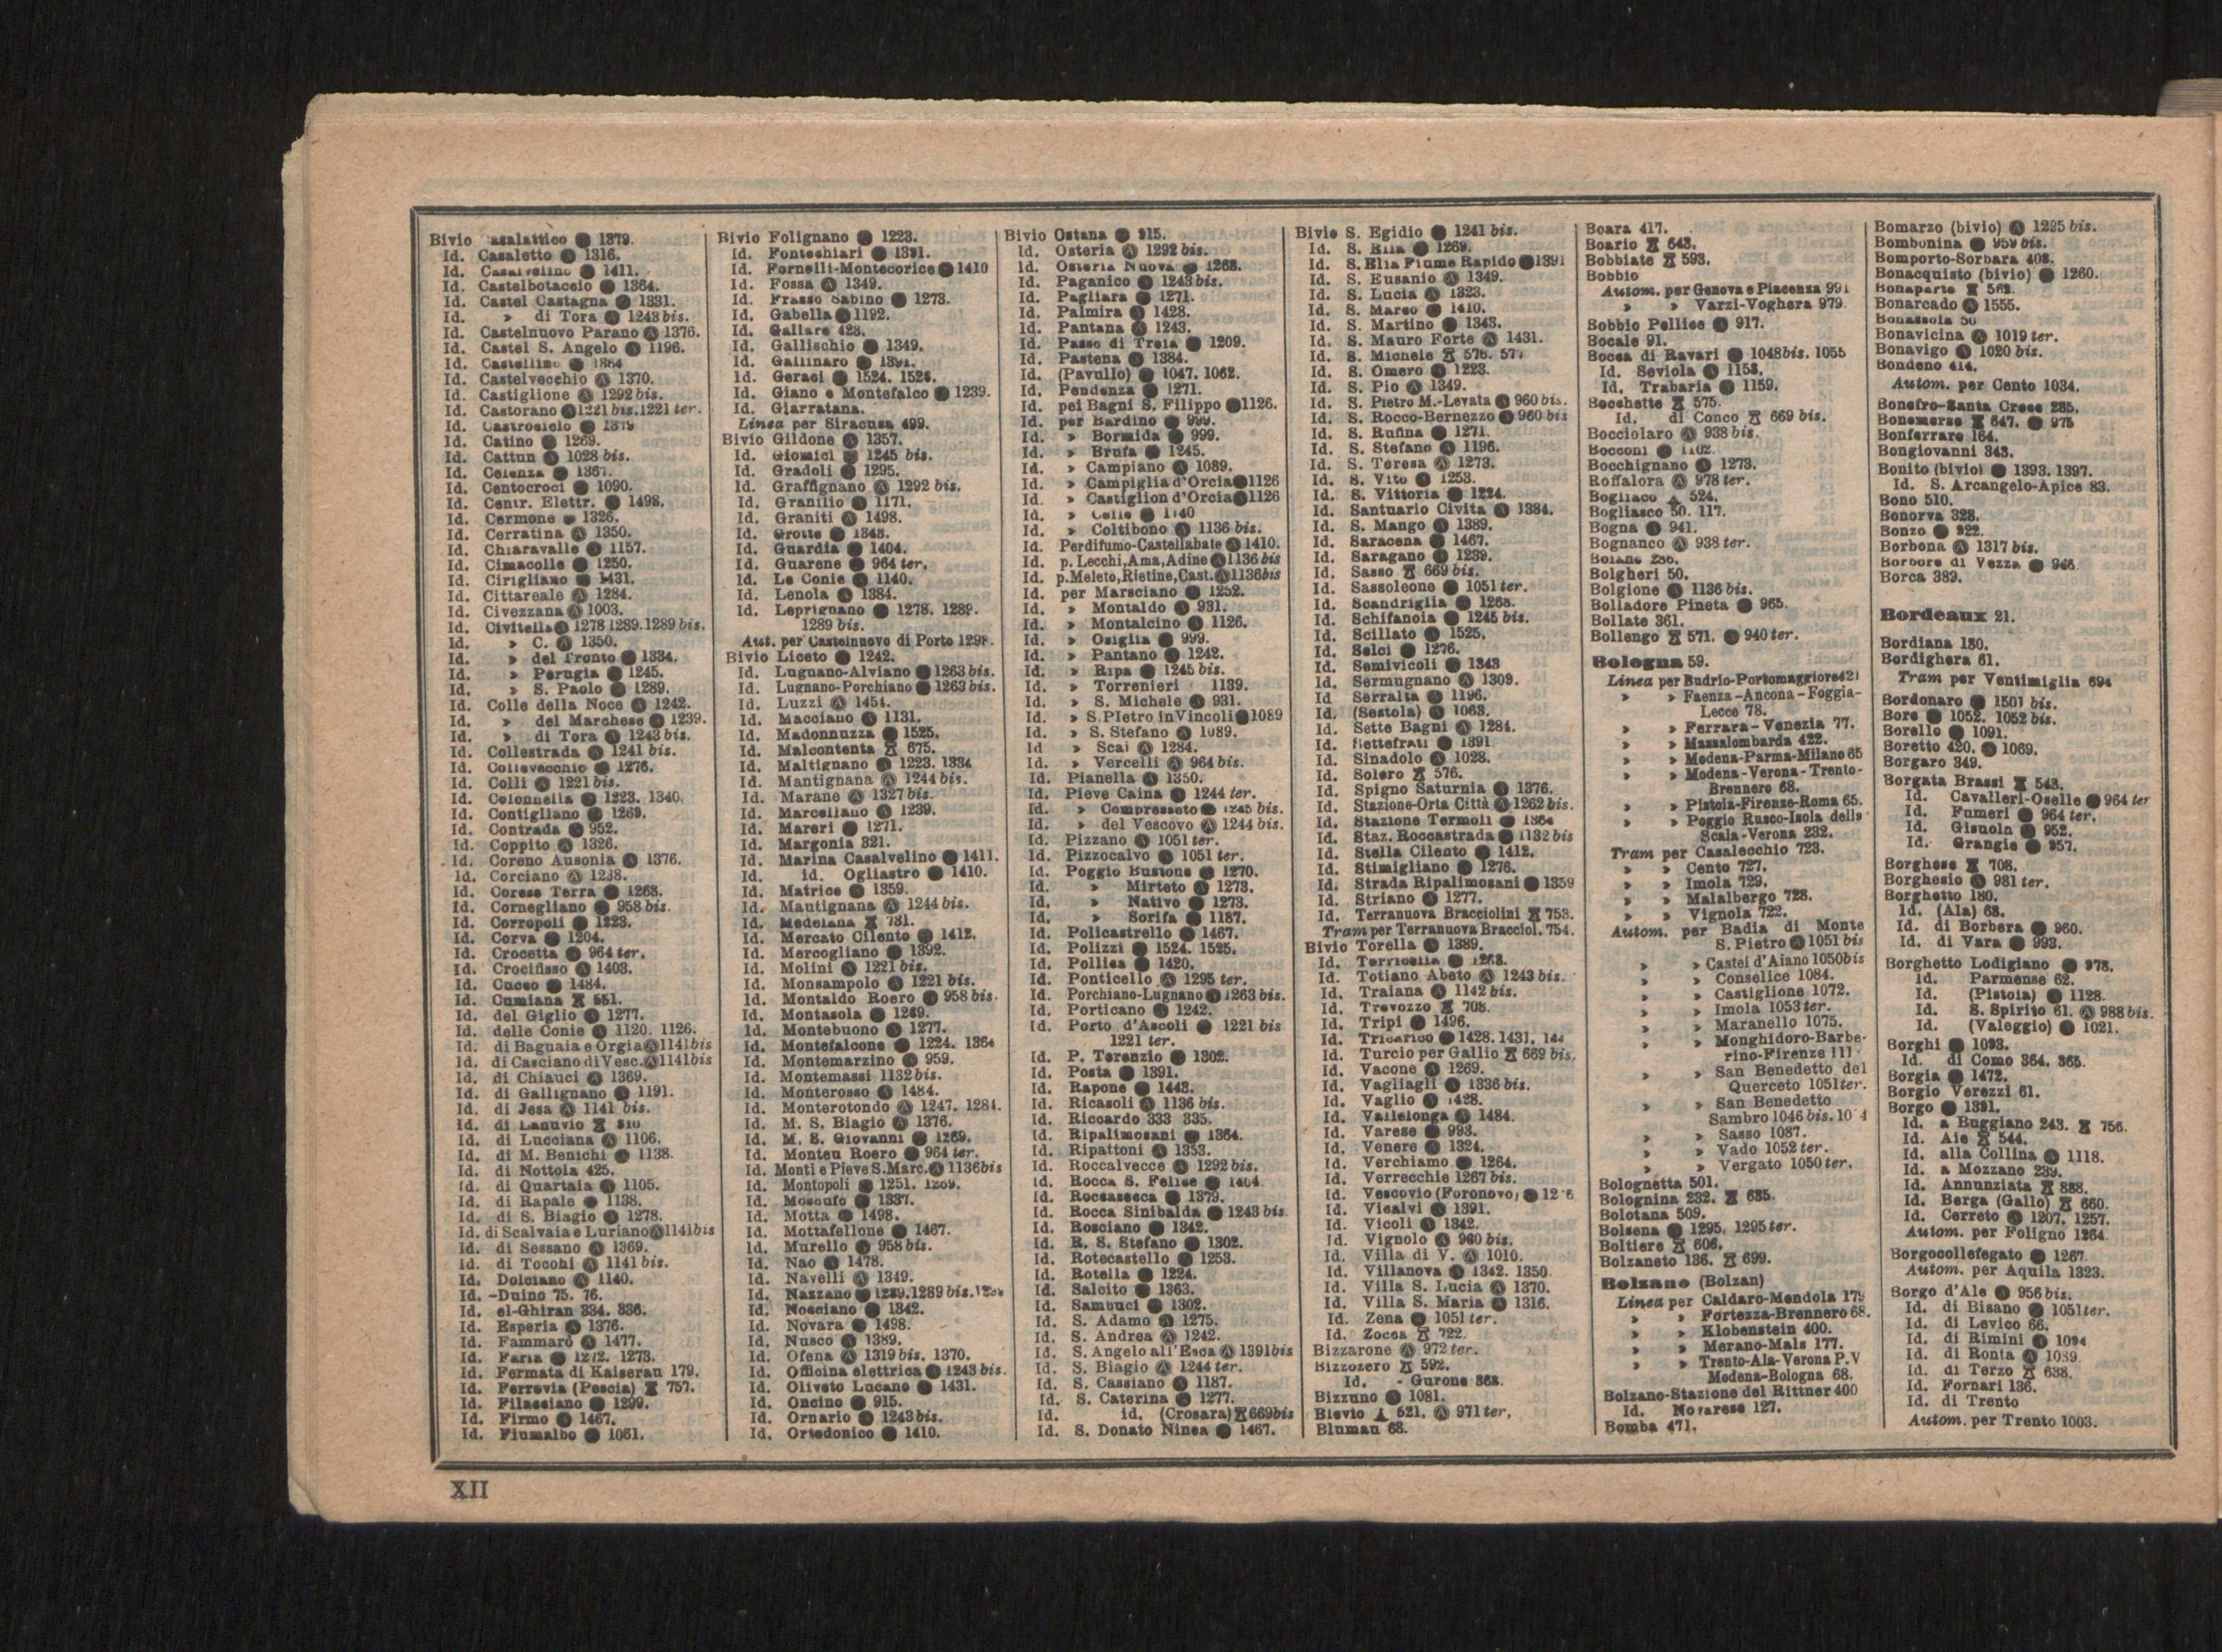 Bivio asalattico Ⓐ 1379.
Id. Casaletto Ⓐ 1316.
Id. Casalvelino Ⓐ 1411.
Id. Castelbotaccio Ⓐ 1364.
Id. Castel Castagna Ⓐ 1331.
Id. » di Tora Ⓐ 1243 bis.
Id. Castelnuovo Parano Ⓐ 1376.
Id. Castel S. Angelo Ⓐ 1196.
Id. Castellino Ⓐ 1364
Id. Castelvecchio Ⓐ 1370.
Id. Castiglione Ⓐ 1292 bis.
Id. Castorano Ⓐ 1221 bis. 1221 ter.
Id. Castrocielo Ⓐ 1379
Id. Catino Ⓐ 1269.
Id. Cattun Ⓐ 1028 bis.
Id. Celenza Ⓐ 1367.
Id. Centocroci Ⓐ 1090.
Id. Centr. Elettr. Ⓐ 1498.
Id. Cermone Ⓐ 1326.
Id. Cerratina Ⓐ 1350.
Id. Chiaravalle Ⓐ 1157.
Id. Cimacolle Ⓐ 1250.
Id. Cirigliano Ⓐ 1431.
Id. Cittareale Ⓐ 1284.
Id. Civezzana Ⓐ 1003.
Id. Civitella Ⓐ 1278 1289. 1289 bis.
Id. » C. Ⓐ 1350.
Id. » del Tronto Ⓐ 1334.
Id. » Perugia Ⓐ 1245.
Id. » S. Paolo Ⓐ 1289.
Id. Colle della Noce Ⓐ 1242.
Id. » del Marchese Ⓐ 1239.
Id. » di Tora Ⓐ 1243 bis.
Id. Collestrada Ⓐ 1241 bis.
Id. Collevecchio Ⓐ 1276.
Id. Colli Ⓐ 1221 bis.
Id. Colonnella Ⓐ 1223. 1340.
Id. Contigliano Ⓐ 1269.
Id. Contrada Ⓐ 952.
Id. Coppito Ⓐ 1326.
Id. Coreno Ausonia Ⓐ 1376.
Id. Corciano Ⓐ 1238.
Id. Corese Terra Ⓐ 1268.
Id. Cornegliano Ⓐ 958 bis.
Id. Corropoli Ⓐ 1223.
Id. Corva Ⓐ 1204.
Id. Crocetta Ⓐ 964 ter.
Id. Crocifisso Ⓐ 1403.
Id. Cuceo Ⓐ 1484.
Id. Cumiana 551.
Id. del Giglio Ⓐ 1277.
Id. delle Conie Ⓐ 1120. 1126.
Id. di Bagnaia e Orgia Ⓐ 1141 bis
Id. di Casciano di Vesc. Ⓐ 1141 bis
Id. di Chiauci Ⓐ 1369.
Id. di Gallignano Ⓐ 1191.
Id. di Jesa Ⓐ 1141 bis.
Id. di Lanuvio
Id. di Lucciana Ⓐ 1106.
Id. di M. Benichi Ⓐ 1138.
Id. di Nottola 425.
Id. di Quartaia Ⓐ 1105.
Id. di Rapale Ⓐ 1138.
Id. di S. Biagio Ⓐ 1278.
Id. di Scalvaia e Luriano Ⓐ 1141 bis
Id. di Sessano Ⓐ 1369.
Id. di Tocchi Ⓐ 1141 bis.
Id. Dolciano Ⓐ 1140.
Id. -Duino 75. 76.
Id. el-Ghiran 334. 336.
Id. Esperia Ⓐ 1376.
Id. Fammarò Ⓐ 1477.
Id. Faria Ⓐ 1272. 1273.
Id. Fermata di Kaiserau 179.
Id. Ferrovia (Pescia) 757.
Id. Filacciano Ⓐ 1299.
Id. Firmo Ⓐ 1467.
Id. Fiumalbo Ⓐ 1061.
Bivio Folignano Ⓐ 1223.
Id. Fontechiari Ⓐ 1391.
Id. Fornelli-Montecorice Ⓐ 1410
Id. Fossa Ⓐ 1349.
Id. Frasso Sabino Ⓐ 1273.
Id. Gabella Ⓐ 1192.
Id. Gallare 428.
Id. Gallischio Ⓐ 1349.
Id. Gallinaro Ⓐ 1391.
Id. Geraci Ⓐ 1524. 1525.
Id. Giano e Montefalco Ⓐ 1239.
Id. Giarratana.
Linea per Siracusa 499.
Bivio Gildone Ⓐ 1357.
Id. Giomici Ⓐ 1245 bis.
Id. Gradoli Ⓐ 1295.
Id. Graffignano Ⓐ 1292 bis.
Id. Granilio Ⓐ 1171.
Id. Graniti Ⓐ 1498.
Id. Grotte Ⓐ 1343.
Id. Guardia Ⓐ 1404.
Id. Guarene Ⓐ 964 ter.
Id. Le Conie Ⓐ 1140.
Id. Lenola Ⓐ 1384.
Id. Leprignano Ⓐ 1278. 1289.
1289 bis.
Aut. per Castelnuovo di Porto 1298.
Bivio Liceto Ⓐ 1242.
Id. Lugnano-Alviano Ⓐ 1263 bis.
Id. Lugnano-Porchiano Ⓐ 1263 bis.
Id. Luzzi Ⓐ 1454.
Id. Macciano Ⓐ 1131.
Id. Madonnuzza Ⓐ 1525.
Id. Malcontenta 675.
Id. Maltignano Ⓐ 1223. 1334
Id. Mantignana Ⓐ 1244 bis.
Id. Marane Ⓐ 1327 bis.
Id. Marcellano Ⓐ 1239.
Id. Mareri Ⓐ 1271.
Id. Margonia 321.
Id. Marina Casalvelino Ⓐ 1411.
Id. id. Ogliastro Ⓐ 1410.
Id. Matrice Ⓐ 1359.
Id. Mautignana Ⓐ 1244 bis.
Id. Medelana 731.
Id. Mercato Cilento Ⓐ 1412.
Id. Mercogliano Ⓐ 1392.
Id. Molini Ⓐ 1221 bis.
Id. Monsampolo Ⓐ 1221 bis.
Id. Montaldo Roero Ⓐ 958 bis.
Id. Montasola Ⓐ 1269.
Id. Montebuono Ⓐ 1277.
Id. Montefalcone Ⓐ 1224. 1364
Id. Montemarzino Ⓐ 959.
Id. Montemassi 1132 bis.
Id. Monterosso Ⓐ 1484.
Id. Monterotondo Ⓐ 1247. 1284.
Id. M. S. Biagio Ⓐ 1376.
Id. M. S. Giovanni Ⓐ 1269.
Id. Monteu Roero Ⓐ 964 ter.
Id. Monti e Pieve S. Marc. Ⓐ 1136 bis
Id. Montopoli Ⓐ 1251. 1269.
Id. Moscufo Ⓐ 1337.
Id. Motta Ⓐ 1498.
Id. Mottafellone Ⓐ 1467.
Id. Murello Ⓐ 958 bis.
Id. Nao Ⓐ 1478.
Id. Navelli Ⓐ 1349.
Id. Nazzano Ⓐ 1289. 1289 bis.
Id. Nosciano Ⓐ 1342.
Id. Novara Ⓐ 1498.
Id. Nusco Ⓐ 1389.
Id. Ofena Ⓐ 1319 bis. 1370.
Id. Officina elettrica Ⓐ 1243 bis.
Id. Oliveto Lucano Ⓐ 1431.
Id. Oncino Ⓐ 915.
Id. Ornario Ⓐ 1243 bis.
Id. Ortodonico Ⓐ 1410.
Bivio Ostana Ⓐ 915.
Id. Osteria Ⓐ 1292 bis.
Id. Osteria Nuova Ⓐ 1268.
Id. Paganico Ⓐ 1243 bis.
Id. Pagliara Ⓐ 1271.
Id. Palmira Ⓐ 1428.
Id. Pantana Ⓐ 1243.
Id. Passo di Treia Ⓐ 1209.
Id. Pastena Ⓐ 1384.
Id. (Pavullo) Ⓐ 1047. 1062.
Id. Pendenza Ⓐ 1271.
Id. pei Bagni S. Filippo Ⓐ 1126.
Id. per Bardino Ⓐ 999.
Id. » Bormida Ⓐ 999.
Id. » Brufa Ⓐ 1245.
Id. » Campiano Ⓐ 1089.
Id. » Campiglia d'Orcia Ⓐ 1126
Id. » Castiglion d'Orcia Ⓐ 1126
Id. » Celle Ⓐ 1140
Id. » Coltibono Ⓐ 1136 bis.
Id. Perdifumo-Castellabate Ⓐ 1410.
Id. p. Lecchi, Ama, Adine Ⓐ 1136 bis
Id. p. Meleto, Rietine, Cast. Ⓐ 1136 bis
Id. per Marsciano Ⓐ 1252.
Id. » Montaldo Ⓐ 931.
Id. » Montalcino Ⓐ 1126.
Id. » Osiglia Ⓐ 999.
Id. » Pantano Ⓐ 1242.
Id. » Ripa Ⓐ 1245 bis.
Id. » Torrenieri 1139.
Id. » S. Michele Ⓐ 931.
Id. » S. Pietro in Vincoli Ⓐ 1089
Id. » S. Stefano Ⓐ 1089.
Id » Scai Ⓐ 1284.
Id. » Vercelli Ⓐ 964 bis.
Id. Pianella Ⓐ 1350.
Id. Pieve Caina Ⓐ 1244 ter.
Id. » Compresseto Ⓐ 1245 bis.
Id. » del Vescovo Ⓐ 1244 bis.
Id. Pizzano Ⓐ 1051 ter.
Id. Pizzocalvo Ⓐ 1051 ter.
Id. Poggio Bustone Ⓐ 1270.
Id. » Mirteto Ⓐ 1273.
Id. » Nativo Ⓐ 1273.
Id. » Sorifa Ⓐ 1187.
Id. Policastrello Ⓐ 1467.
Id. Polizzi Ⓐ 1524. 1525.
Id. Pollica Ⓐ 1420.
Id. Ponticello Ⓐ 1295 ter.
Id. Porchiano-Lugnano Ⓐ 1263 bis.
Id. Porticano Ⓐ 1242.
Id. Porto d'Ascoli Ⓐ 1221 bis
1221 ter.
Id. P. Terenzio Ⓐ 1302.
Id. Posta Ⓐ 1391.
Id. Rapone Ⓐ 1443.
Id. Ricasoli Ⓐ 1136 bis.
Id. Riccardo 333 335.
Id. Ripalimosani Ⓐ 1364.
Id. Ripattoni Ⓐ 1353.
Id. Roccalvecce Ⓐ 1292 bis.
Id. Rocca S. Felice Ⓐ 1404
Id. Roccasecca Ⓐ 1379.
Id. Rocca Sinibalda Ⓐ 1243 bis
Id. Rosciano Ⓐ 1342.
Id. R. S. Stefano Ⓐ 1302.
Id. Rotecastello Ⓐ 1253.
Id. Rotella Ⓐ 1224.
Id. Salcito Ⓐ 1363.
Id. Sambuci Ⓐ 1302.
Id. S. Adamo Ⓐ 1275.
Id. S. Andrea Ⓐ 1242.
Id. S. Angelo all'Esca Ⓐ 1391 bis
Id. S. Biagio Ⓐ 1244 ter.
Id. S. Cassiano Ⓐ 1187.
Id. S. Caterina Ⓐ 1277.
Id. id. (Crosara) 669 bis
Id. S. Donato Ninea Ⓐ 1467.
Bivio S. Egidio Ⓐ 1241 bis.
Id. S. Elia Ⓐ 1269.
Id. S. Elia Fiume Rapido Ⓐ 1391
Id. S. Eusanio Ⓐ 1349.
Id. S. Lucia Ⓐ 1323.
Id. S. Marco Ⓐ 1410.
Id. S. Martino Ⓐ 1343.
Id. S. Mauro Forte Ⓐ 1431.
Id. S. Michele 576.
Id. S. Omero Ⓐ 1223.
Id. S. Pio Ⓐ 1349.
Id. S. Pietro M.-Levata Ⓐ 960 bis.
Id. S. Rocco-Bernezzo Ⓐ 960 bis
Id. S. Rufina Ⓐ 1271.
Id. S. Stefano Ⓐ 1196.
Id. S. Teresa Ⓐ 1273.
Id. S. Vito Ⓐ 1253.
Id. S. Vittoria Ⓐ 1224.
Id. Santuario Civita Ⓐ 1384.
Id. S. Mango Ⓐ 1389.
Id. Saracena Ⓐ 1467.
Id. Saragano Ⓐ 1239.
Id. Sasso 669 bis.
Id. Sassoleone Ⓐ 1051 ter.
Id. Scandriglia Ⓐ 1268.
Id. Schifanoia Ⓐ 1245 bis.
Id. Scillato Ⓐ 1525.
Id. Selci Ⓐ 1276.
Id. Semivicoli Ⓐ 1343
Id. Sermugnano Ⓐ 1309.
Id. Serralta Ⓐ 1196.
Id. (Sestola) Ⓐ 1063.
Id. Sette Bagni Ⓐ 1284.
Id. Settefrati Ⓐ 1391
Id. Sinadolo Ⓐ 1028.
Id. Solero 576.
Id. Spigno Saturnia Ⓐ 1376.
Id. Stazione-Orta Città Ⓐ 1262 bis.
Id. Stazione Termoli Ⓐ 1364
Id. Staz. Roccastrada Ⓐ 1132 bis
Id. Stella Cilento Ⓐ 1412.
Id. Stimigliano Ⓐ 1276.
Id. Strada Ripalimosani Ⓐ 1359
Id. Striano Ⓐ 1277.
Id. Terranuova Bracciolini 753.
Tram per Terranuova Bracciol. 754.
Bivio Torella Ⓐ 1389.
Id. Torricella Ⓐ 1268.
Id. Totiano Abeto Ⓐ 1243 bis.
Id. Traiana Ⓐ 1142 bis.
Id. Trevozzo 708.
Id. Tripi Ⓐ 1496.
Id. Tricarico Ⓐ 1428. 1431.
Id. Turcio per Gallio 669 bis.
Id. Vacone Ⓐ 1269.
Id. Vagliagli Ⓐ 1336 bis.
Id. Vaglio Ⓐ 1428.
Id. Vallelonga Ⓐ 1484.
Id. Varese Ⓐ 993.
Id. Venere Ⓐ 1324.
Id. Verchiamo Ⓐ 1264.
Id. Verrecchie 1267 bis.
Id. Vescovio (Foronovo) Ⓐ
Id. Vicalvi Ⓐ 1391.
Id. Vicoli Ⓐ 1342.
Id. Vignolo Ⓐ 960 bis.
Id. Villa di V. Ⓐ 1010.
Id. Villanova Ⓐ 1342. 1350
Id. Villa S. Lucia Ⓐ 1370.
Id. Villa S. Maria Ⓐ 1316.
Id. Zena Ⓐ 1051 ter.
Id. Zocca 722.
Bizzarone Ⓐ 972 ter.
Bizzozero 592.
Id. - Gurone 363.
Bizzuno Ⓐ 1081.
Blevio 521. Ⓐ 971 ter.
Blumau 68.
Boara 417.
Boario 643.
Bobbiate 593.
Bobbio
Autom. per Genova e Piacenza 991
» » Varzi-Voghera 979.
Bobbio Pellice Ⓐ 917.
Bocale 91.
Bocca di Ravari Ⓐ 1048 bis. 1055
Id. Seviola Ⓐ 1153.
Id. Trabaria Ⓐ 1159.
Bocchette 575.
Id. di Conco 669 bis.
Bocciolaro Ⓐ 938 bis.
Bocconi Ⓐ 1102.
Bocchignano Ⓐ 1273.
Roffalora Ⓐ 978 ter.
Bogliaco 524.
Bogliasco 50. 117.
Bogna Ⓐ 941.
Bognanco Ⓐ 938 ter.
Boiano 286.
Bolgheri 50.
Bolgione Ⓐ 1136 bis.
Bolladore Pineta Ⓐ 965.
Bollate 361.
Bollengo 571. Ⓐ 940 ter.
Bologna 59.
Linea per Budrio-Portomaggiore 421
» » Faenza-Ancona-Foggia-
Lecce 78.
» » Ferrara-Venezia 77.
» » Massalombarda 422.
» » Modena-Parma-Milano 65
» » Modena-Verona-Trento-
Brennero 68.
» » Pistoia-Firenze-Roma 65.
» » Poggio Rusco-Isola della
Scala-Verona 232.
Tram per Casalecchio 723.
» » Cento 727.
» » Imola 729.
» » Malalbergo 728.
» » Vignola 722.
Autom. per Badia di Monte
S. Pietro Ⓐ 1051 bis
» » Castel d'Aiano 1050 bis
» » Conselice 1084.
» » Castiglione 1072.
» » Imola 1053 ter.
» » Maranello 1075.
» » Monghidoro-Barbe-
rino-Firenze 111
» » San Benedetto del
Querceto 1051 ter.
» » San Benedetto
Sambro 1046 bis.
» » Sasso 1087.
» » Vado 1052 ter.
» » Vergato 1050 ter.
Bolognetta 501.
Bolognina 232. 635.
Bolotana 509.
Bolsena Ⓐ 1295. 1295 ter.
Boltiere 606.
Bolzaneto 136. 699.
Bolzano (Bolzan)
Linea per Caldaro-Mendola 179
» » Fortezza-Brennero 68.
» » Klobenstein 400.
» » Merano-Mals 177.
» » Trento-Ala-Verona P. V
Modena-Bologna 68.
Bolzano-Stazione del Rittner 400
Id. Novarese 127.
Bomba 471.
Bomarzo (bivio) Ⓐ 1295 bis.
Bombonina Ⓐ 959 bis.
Bomporto-Sorbara 408.
Bonacquisto (bivio) Ⓐ 1260.
Bonaparte 562.
Bonarcado Ⓐ 1555.
Bonassola 50
Bonavicina Ⓐ 1019 ter.
Bonavigo Ⓐ 1020 bis.
Bondeno 414.
Autom. per Cento 1034.
Bonefro-Santa Croce 285.
Bonemerse 647. Ⓐ 975
Bonferraro 164.
Bongiovanni 343.
Bonito (bivio) Ⓐ 1393. 1397.
Id. S. Arcangelo-Apice 83.
Bono 510.
Bonorva 328.
Bonzo Ⓐ 922.
Borbona Ⓐ 1317 bis.
Borbore di Vezza Ⓐ 946
Borca 389.
Bordeaux 21.
Bordiana 180.
Bordighera 61.
Tram per Ventimiglia 694
Bordonaro Ⓐ 1501 bis.
Bore Ⓐ 1052. 1052 bis.
Borello Ⓐ 1091.
Boretto 420. Ⓐ 1069.
Borgaro 349.
Borgata Brassi 543.
Id. Cavalleri-Oselle Ⓐ 964 ter
Id. Fumeri Ⓐ 964 ter.
Id. Gisuola Ⓐ 952.
Id. Grangie Ⓐ 957.
Borghese 708.
Borghesio Ⓐ 981 ter.
Borghetto 180.
Id. (Ala) 68.
Id. di Borbera Ⓐ 960.
Id. di Vara Ⓐ 993.
Borghetto Lodigiano Ⓐ 978.
Id. Parmense 62.
Id. (Pistoia) Ⓐ 1128.
Id. S. Spirito 61. Ⓐ 988 bis.
Id. (Valeggio) Ⓐ 1021.
Borghi Ⓐ 1093.
Id. di Como 364. 365.
Borgia Ⓐ 1472.
Borgio Verezzi 61.
Borgo Ⓐ 1391.
Id. a Buggiano 243. 756.
Id. Aie 544.
Id. alla Collina Ⓐ 1118.
Id. a Mozzano 239.
Id. Annunziata 888.
Id. Berga (Gallo) 660.
Id. Cerreto Ⓐ 1207. 1257.
Autom. per Foligno 1264
Borgocollefegato Ⓐ 1267
Autom. per Aquila 1323.
Borgo d'Ale Ⓐ 956 bis.
Id. di Bisano Ⓐ 1051 ter.
Id. di Levico 66.
Id. di Rimini Ⓐ 1094
Id. di Ronta Ⓐ 1089
Id. di Terzo 638.
Id. Fornari 136.
Id. di Trento
Autom. per Trento 1003.
XII